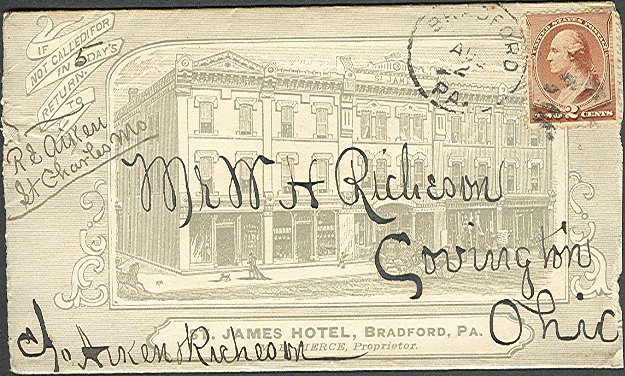 IF
NOT CALLED FOR
IN 5 DAY'S
RETURN
TO
R E Aiken
St Charles Mo
BRADFORD
PA.
UNITED STATES POSTAGE
2 CENTS
ST. JAMES
Mr W H Richeson
Covington
Ohio
ST. JAMES HOTEL, BRADFORD, PA.
Proprietor.
c/o Aiken & Richeson